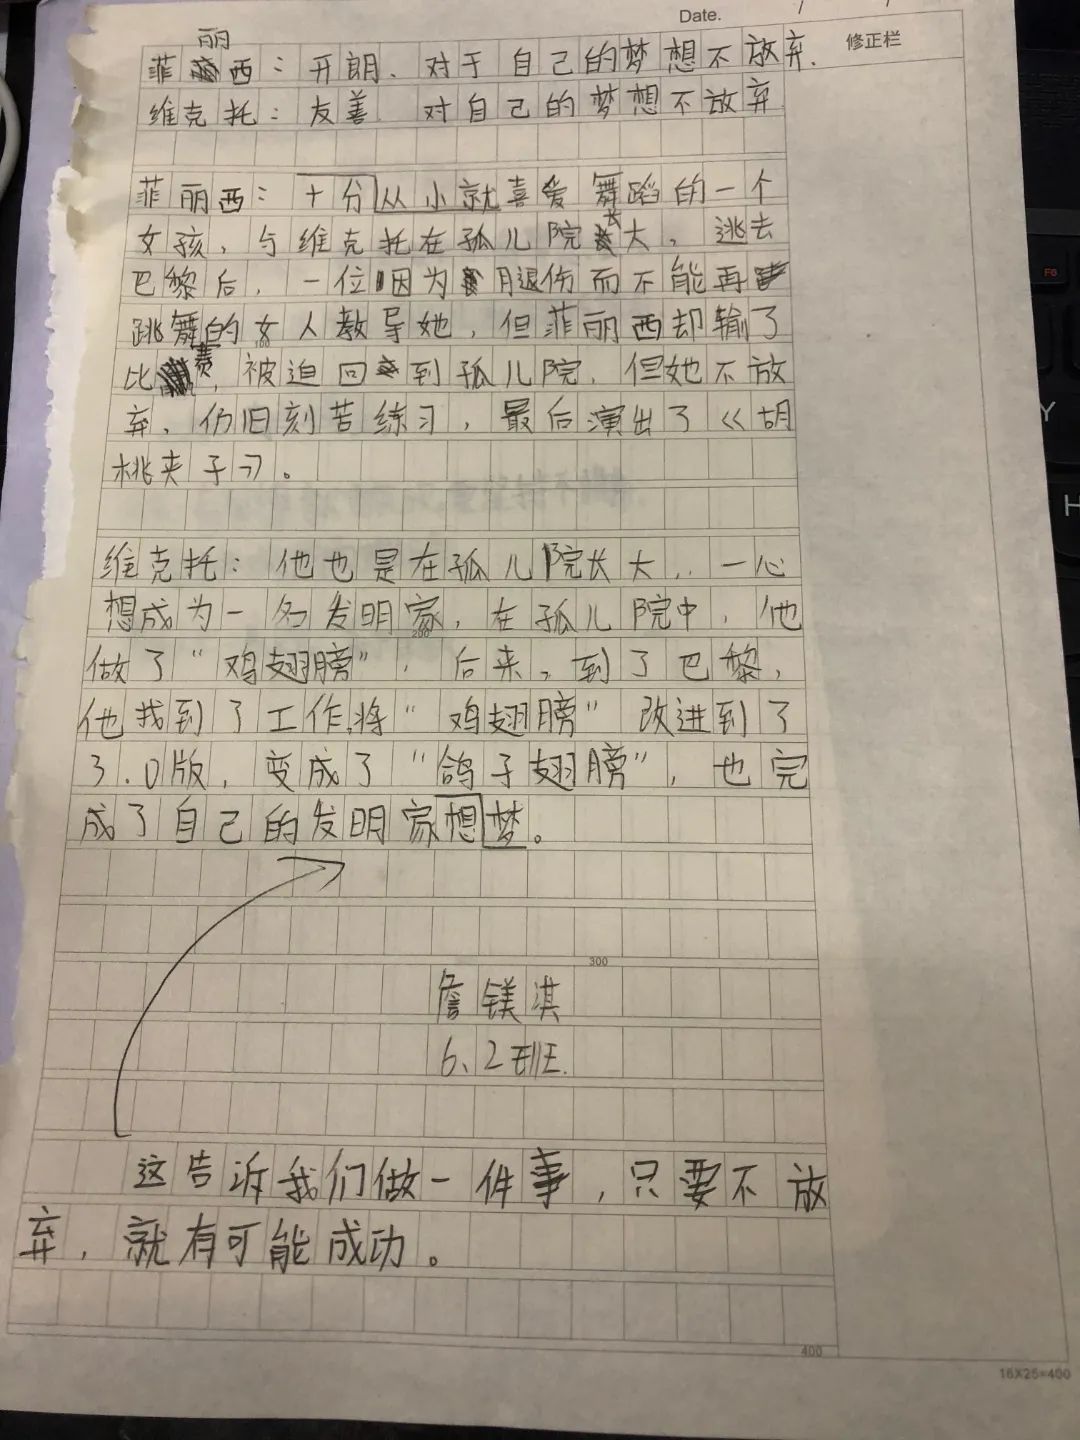 Date. / /
修正栏
丽
菲西：开朗、对于自己的梦想不放弃.
维克托：友善 对自己的梦想不放弃
菲丽西：十分从小就喜爱舞蹈的一个
女孩，与维克托在孤儿院长大，逃去
巴黎后，一位因为腿伤而不能再
跳舞的女人教导她，但菲丽西却输了
比赛，被迫回到孤儿院，但她不放
弃，仍旧刻苦练习，最后演出了《胡
桃夹子》。
维克托：他也是在孤儿院长大，．一心
想成为一名发明家，在孤儿院中，他
200
做了“鸡翅膀”，后来，到了巴黎，
他找到了工作，将“鸡翅膀”改进到了
3.0版，变成了“鸽子翅膀”，也完
成了自己的发明家想梦。
300
詹镁淇
6、2班.
这告诉我们做一件事，只要不放
弃，就有可能成功。
400
16X25=400
F6
Y
H